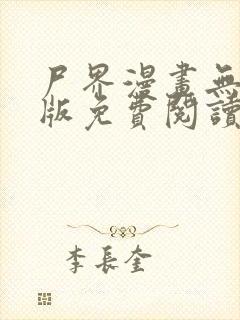 尸界漫畫無
版免費閱讀
李長奎